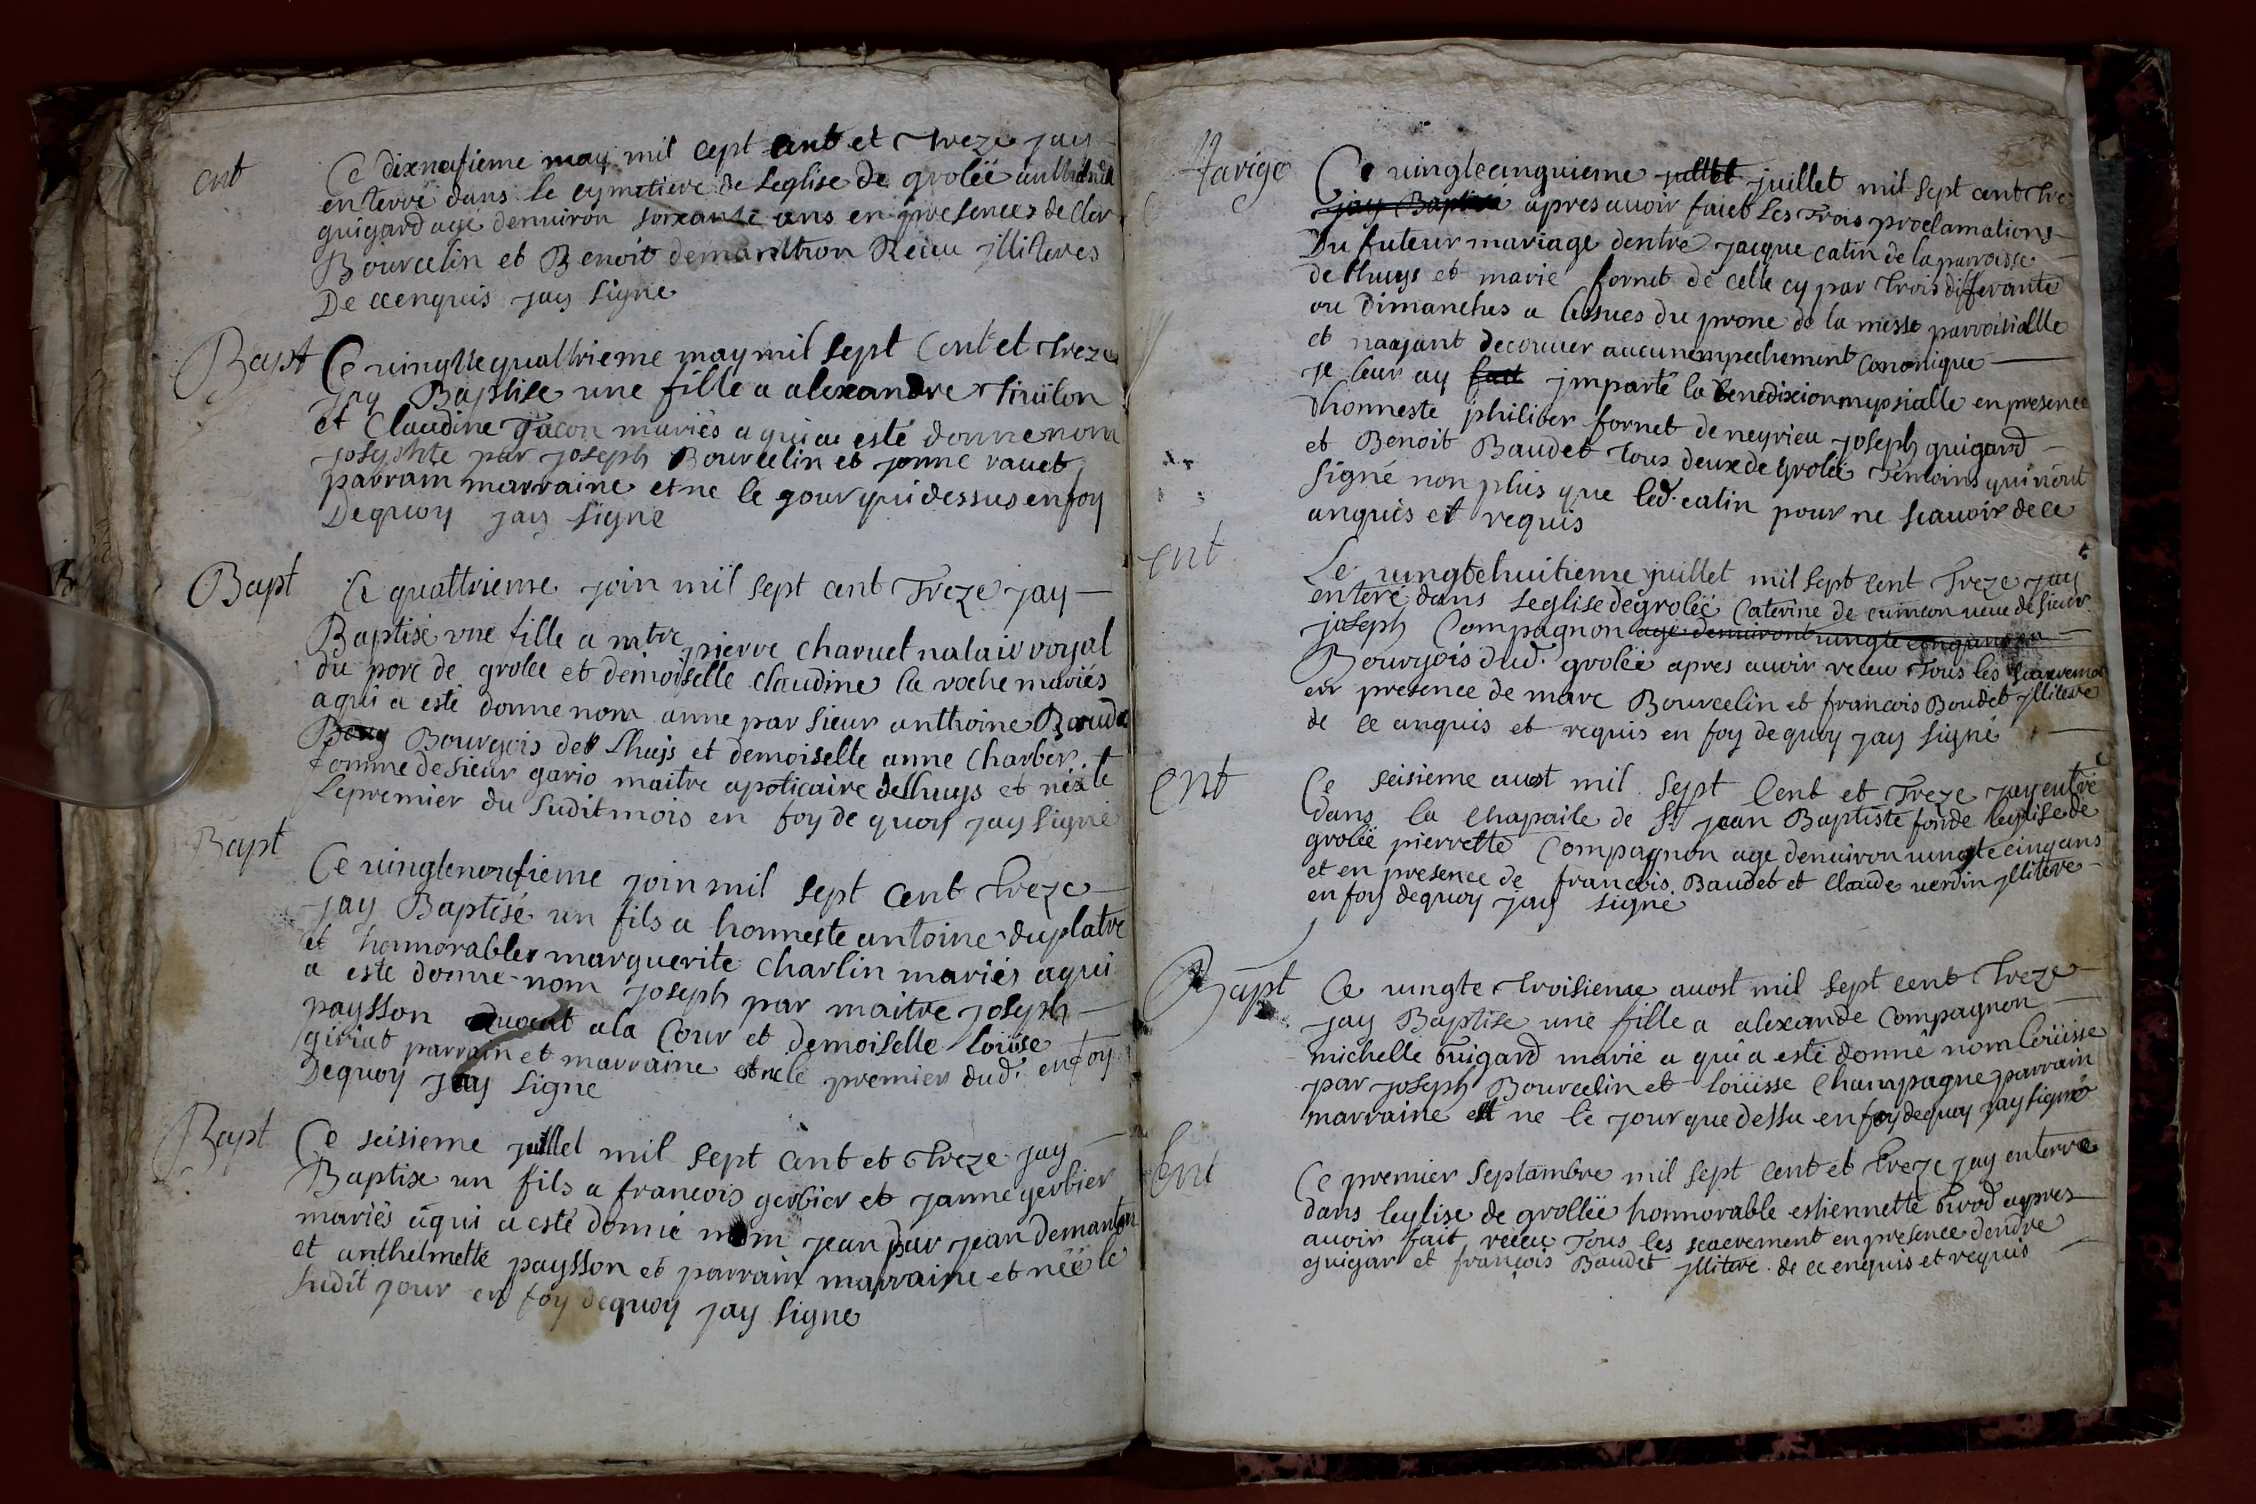 ent
Ce dixneufieme may mil cept cent et treze jay
enterré dans le cymetiere de leglise de groleë
guigard agé denuiron soixante ans en presences de
Bourcelin et Benoit demanthon Reieu jlliteres
De ceenquis jay signe
Bapt
Ce uingtequattrieme may mil sept Cent et treze
jay Baptise une fille a alexandre
et Claudine mariés a qui a esté donne nom
josephte par joseph Bourcelin et janne rauet
parrain marraine et ne le jour qui dessus en foy
Dequoy jay signe
Bapt
Ce quattrieme join mil sept cent treze jay
Baptisé une fille a mtre pierre charuet nataire royal
du porc de grolee et demoiselle claudine la roche mariés
a qui a esté donne nom anne par sieur anthoine
Bourgois de Lhuys et demoiselle anne Charbier
femme de sieur gario maitre apoticaire delhuys et
Le premier du sudit mois en foy de quoy jay signe
Bapt
Ce uingteneufieme join mil sept cent treze
jay Baptisé un fils a honneste antoine duplatre
et honnorables marguerite charlin mariés a qui
a este donne nom joseph par maitre joseph
paysson auocat a la Cour et demoiselle loüise
giriat parrain et marraine et ne le premier dud. en foy
Dequoy jay signe
Bapt
Ce seisieme juillet mil sept cent et treze jay
Baptise un fils a francois gerbier et janne gerbier
mariés a qui a esté donné nom jean par jean demanton
et anthelmette paysson et parrain marraine et néé le
sudit jour en foy dequoy jay signe
Mariage
Ce uingtecinquieme juillet juillet mil sept cent tre
jay Baptisé apres auoir faict les trois proclamations
Du futeur mariage dentre jacque catin de la parroisse
de lhuys et marie fornet de celle cy par trois differante
ou Dimanches a lissues du prone de la messe parroisialle
et naajant decouuer aucun empechement canonique
je leur ay fait jmparté la benedixion nupsialle en presence
dhonneste philiber fornet de neyrieu joseph guigard
et Benoit Baudet tous deux de grolée temoins qui nont
signé non plus que led. catin pour ne scauoir de ce
anquis et requis
ent
Le uingtehuitieme juillet mil sept cent treze jay
enteré dans leglise de groleë Caterine de cuineon ueue de sieur
joseph Compagnon agé denuiront uingte cinq ans
Bourgois dud. groleë apres auoir receu tous les sacremos
en presence de marc Bourcelin et francois Boudet jllitere
de ce anquis et requis en foy dequoy jay signé
ent
Ce seisieme auost mil sept Cent et treze jay entré
dans la chapaile de st jean Baptiste leglise de
groleë pierrette Compagnon age denuiron uingte cinq ans
et en presence de francois Baudet et Claude uerdin jllitere
en foy dequoy jay signé
Bapt
Ce uingte troisieme auost mil sept cent treze
jay Baptise une fille a alexande Compagnon
michelle guigard marié a qui a esté donné nom loüisse
par joseph Bourcelin et loüisse Champagne parrain
marraine et ne le jour que dessu en foy dequoy jay signé
Ent
Ce premier septambre mil sept cent et treze jay enterre
dans leglise de grolleë honnorable estiennette brod apres
auoir fait receu tous les sacrement en presence dendre
guigar et françois Baudet jllitere de ce enquis et requis